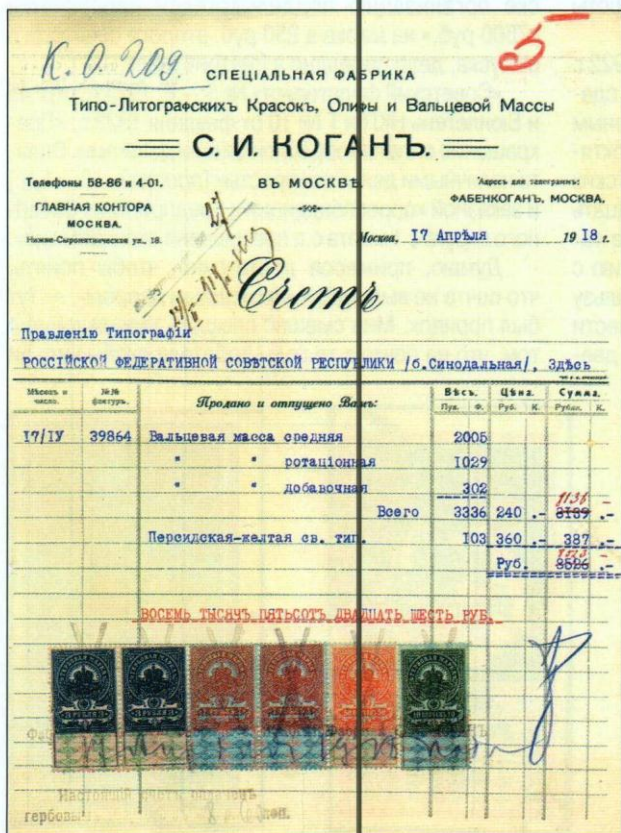 К. О. 209.
5
СПЕЦІАЛЬНАЯ ФАБРИКА
Типо-Литографскихъ Красокъ, Олифы и Вальцевой Массы
С. И. КОГАНЪ.
ВЪ МОСКВѢ.
Телефоны 58-86 и 4-01.
ГЛАВНАЯ КОНТОРА
МОСКВА.
Нижне-Сыромятническая ул., 18.
Адресъ для телеграммъ:
ФАБЕНКОГАНЪ, МОСКВА.
Москва, 17 Апрѣля 1918.
Счетъ
Правленію Типографіи
РОССІЙСКОЙ ФЕДЕРАТИВНОЙ СОВѢТСКОЙ РЕСПУБЛИКИ /б.Синодальная/, Здѣсь
Мѣсяцъ и число. №№ фактуръ. Продано и отпущено Вамъ: Вѣсъ. Цѣна. Сумма.
Пуд. Ф. Руб. К. Рубли. К.
17/IУ 39864 Вальцевая масса средняя 2005
" " ротаціонная 1029
" " добавочная 302
Всего 3336 240 .- 8139 .-
Персидская-желтая св. тип. 103 360 .- 387 .-
Руб. 8526 .-
ВОСЕМЬ ТЫСЯЧЪ ПЯТЬСОТЪ ДВАДЦАТЬ ШЕСТЬ РУБ.